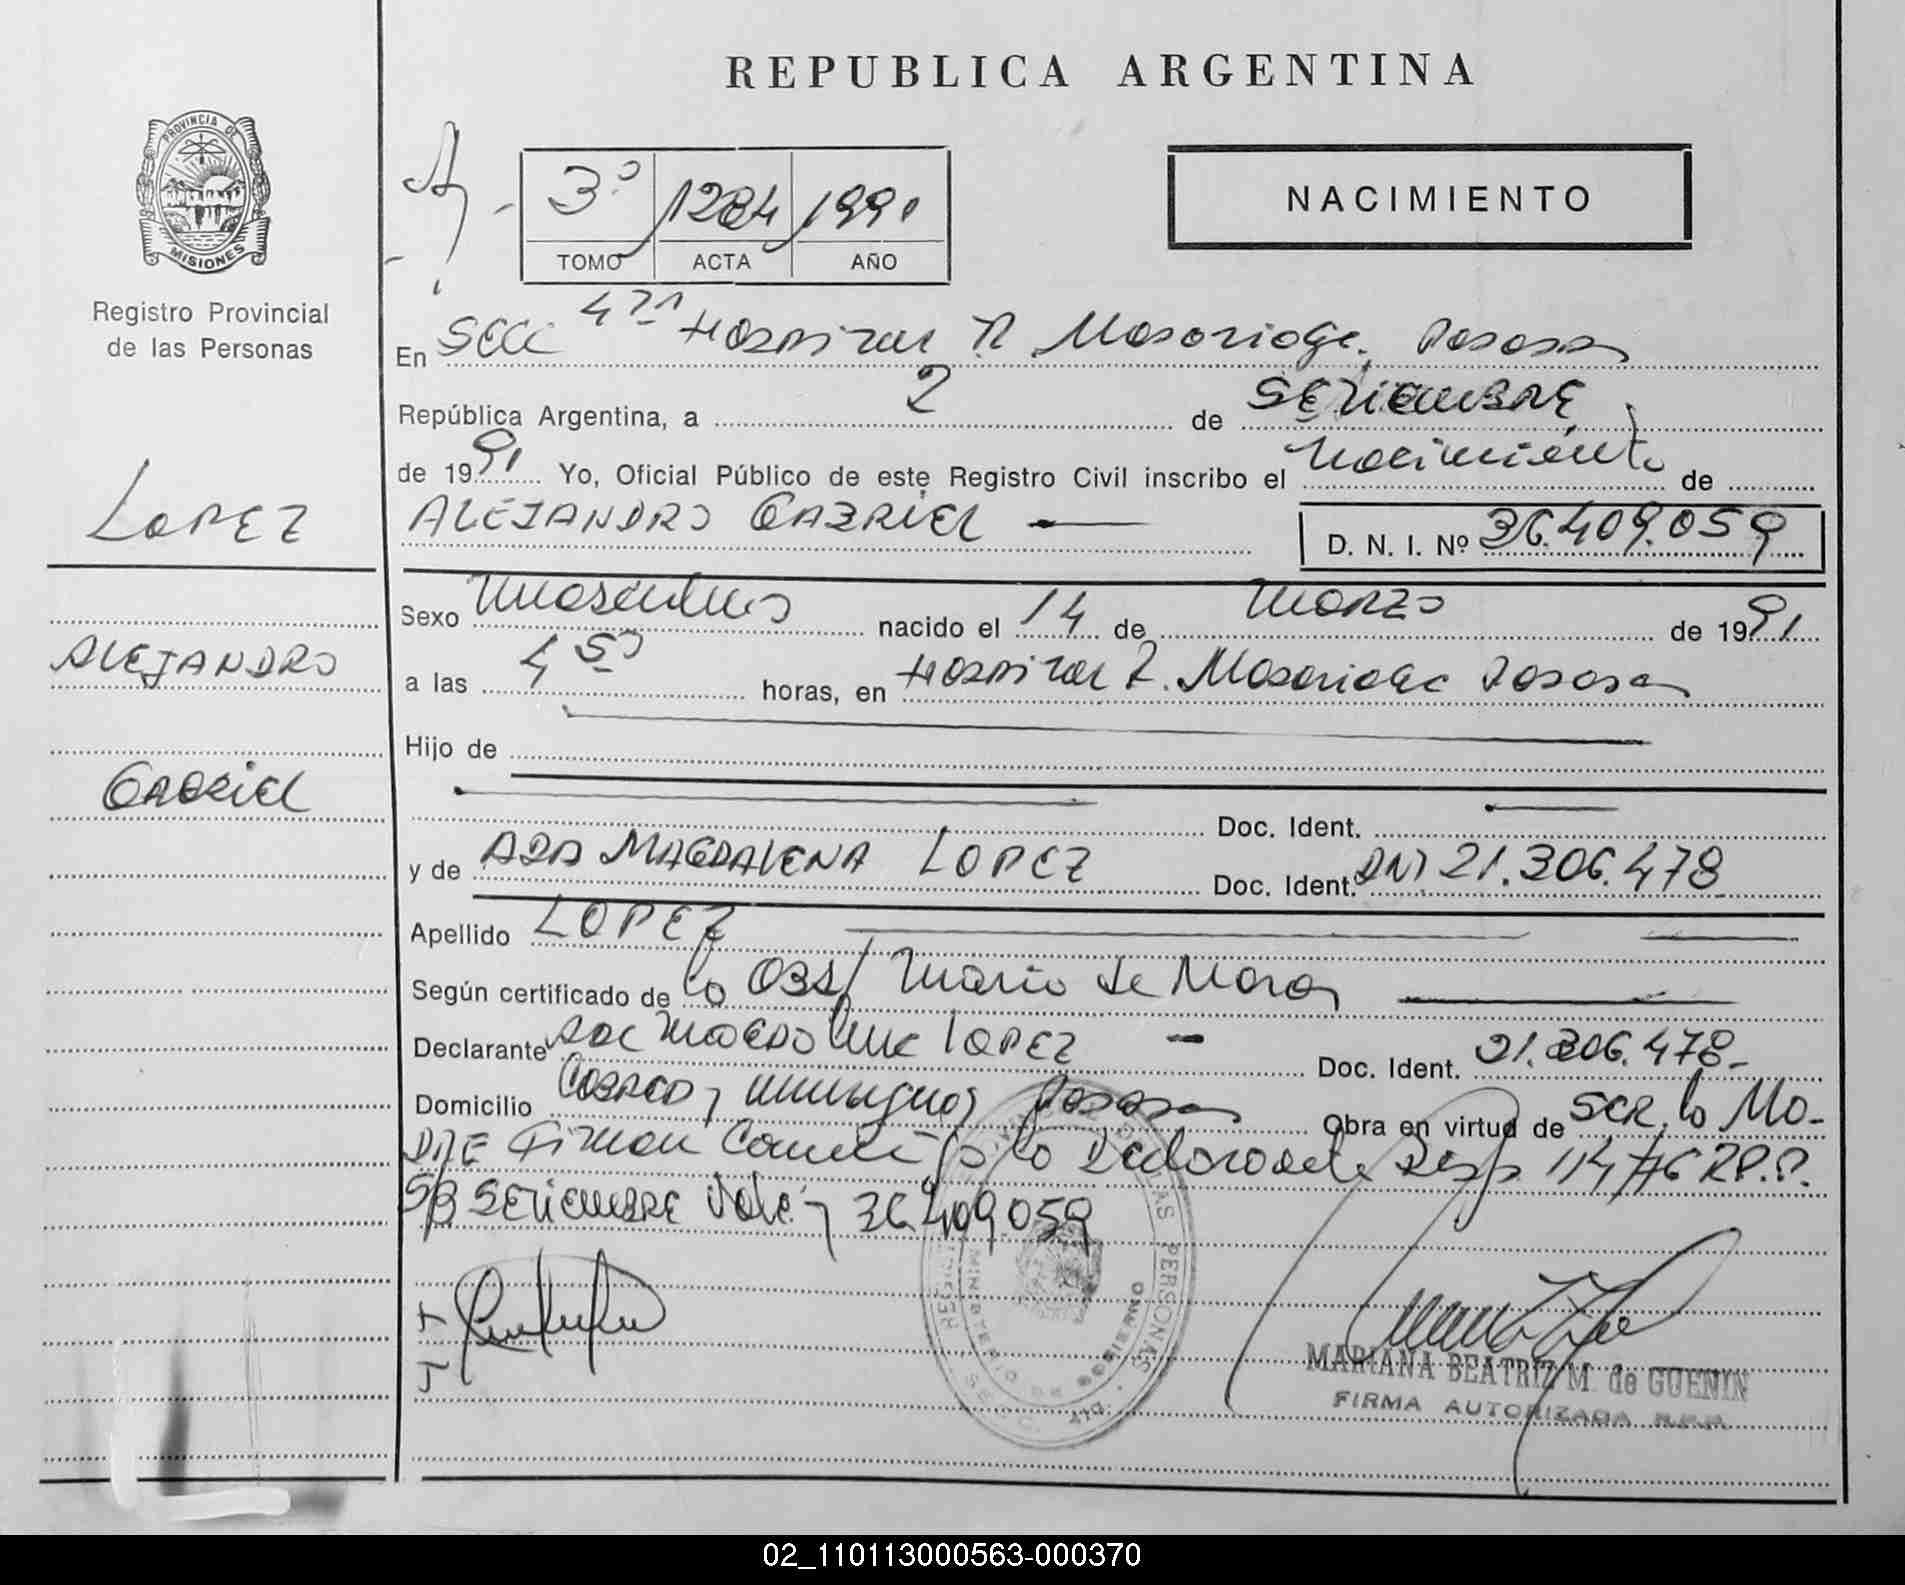 REPUBLICA ARGENTINA
PROVINCIA DE
MISIONES
Registro Provincial
de las Personas
3º 1284 1991
TOMO ACTA AÑO
NACIMIENTO
En Secc 4ta Hospital R. Madariaga. Posadas
República Argentina, a 2 de SETIEMBRE
de 1991 Yo, Oficial Público de este Registro Civil inscribo el Nacimiento de
LOPEZ
ALEJANDRO GABRIEL
D. N. I. Nº 36.409.059
Sexo Masculino nacido el 14 de Marzo de 1991
ALEJANDRO
a las 4 50 horas, en Hospital R. Madariaga Posadas
Hijo de
GABRIEL
Doc. Ident.
y de ADA MAGDALENA LOPEZ Doc. Ident. DNI 21.306.478
Apellido LOPEZ
Según certificado de la Obst/ Maria de
Declarante Magdalena LOPEZ - Doc. Ident. 21.306.478-
Domicilio y Posadas Obra en virtud de ser la Ma-
DRE Firman la Declarante Disp. 114/76 R.P.P.
S/B SETIEMBRE Vale.- 36.409.059
DE LAS PERSONAS
MINISTERIO DE GOBIERNO
MARIANA BEATRIZ M. de GUENIN
FIRMA AUTORIZADA R.P.P.
02_110113000563-000370